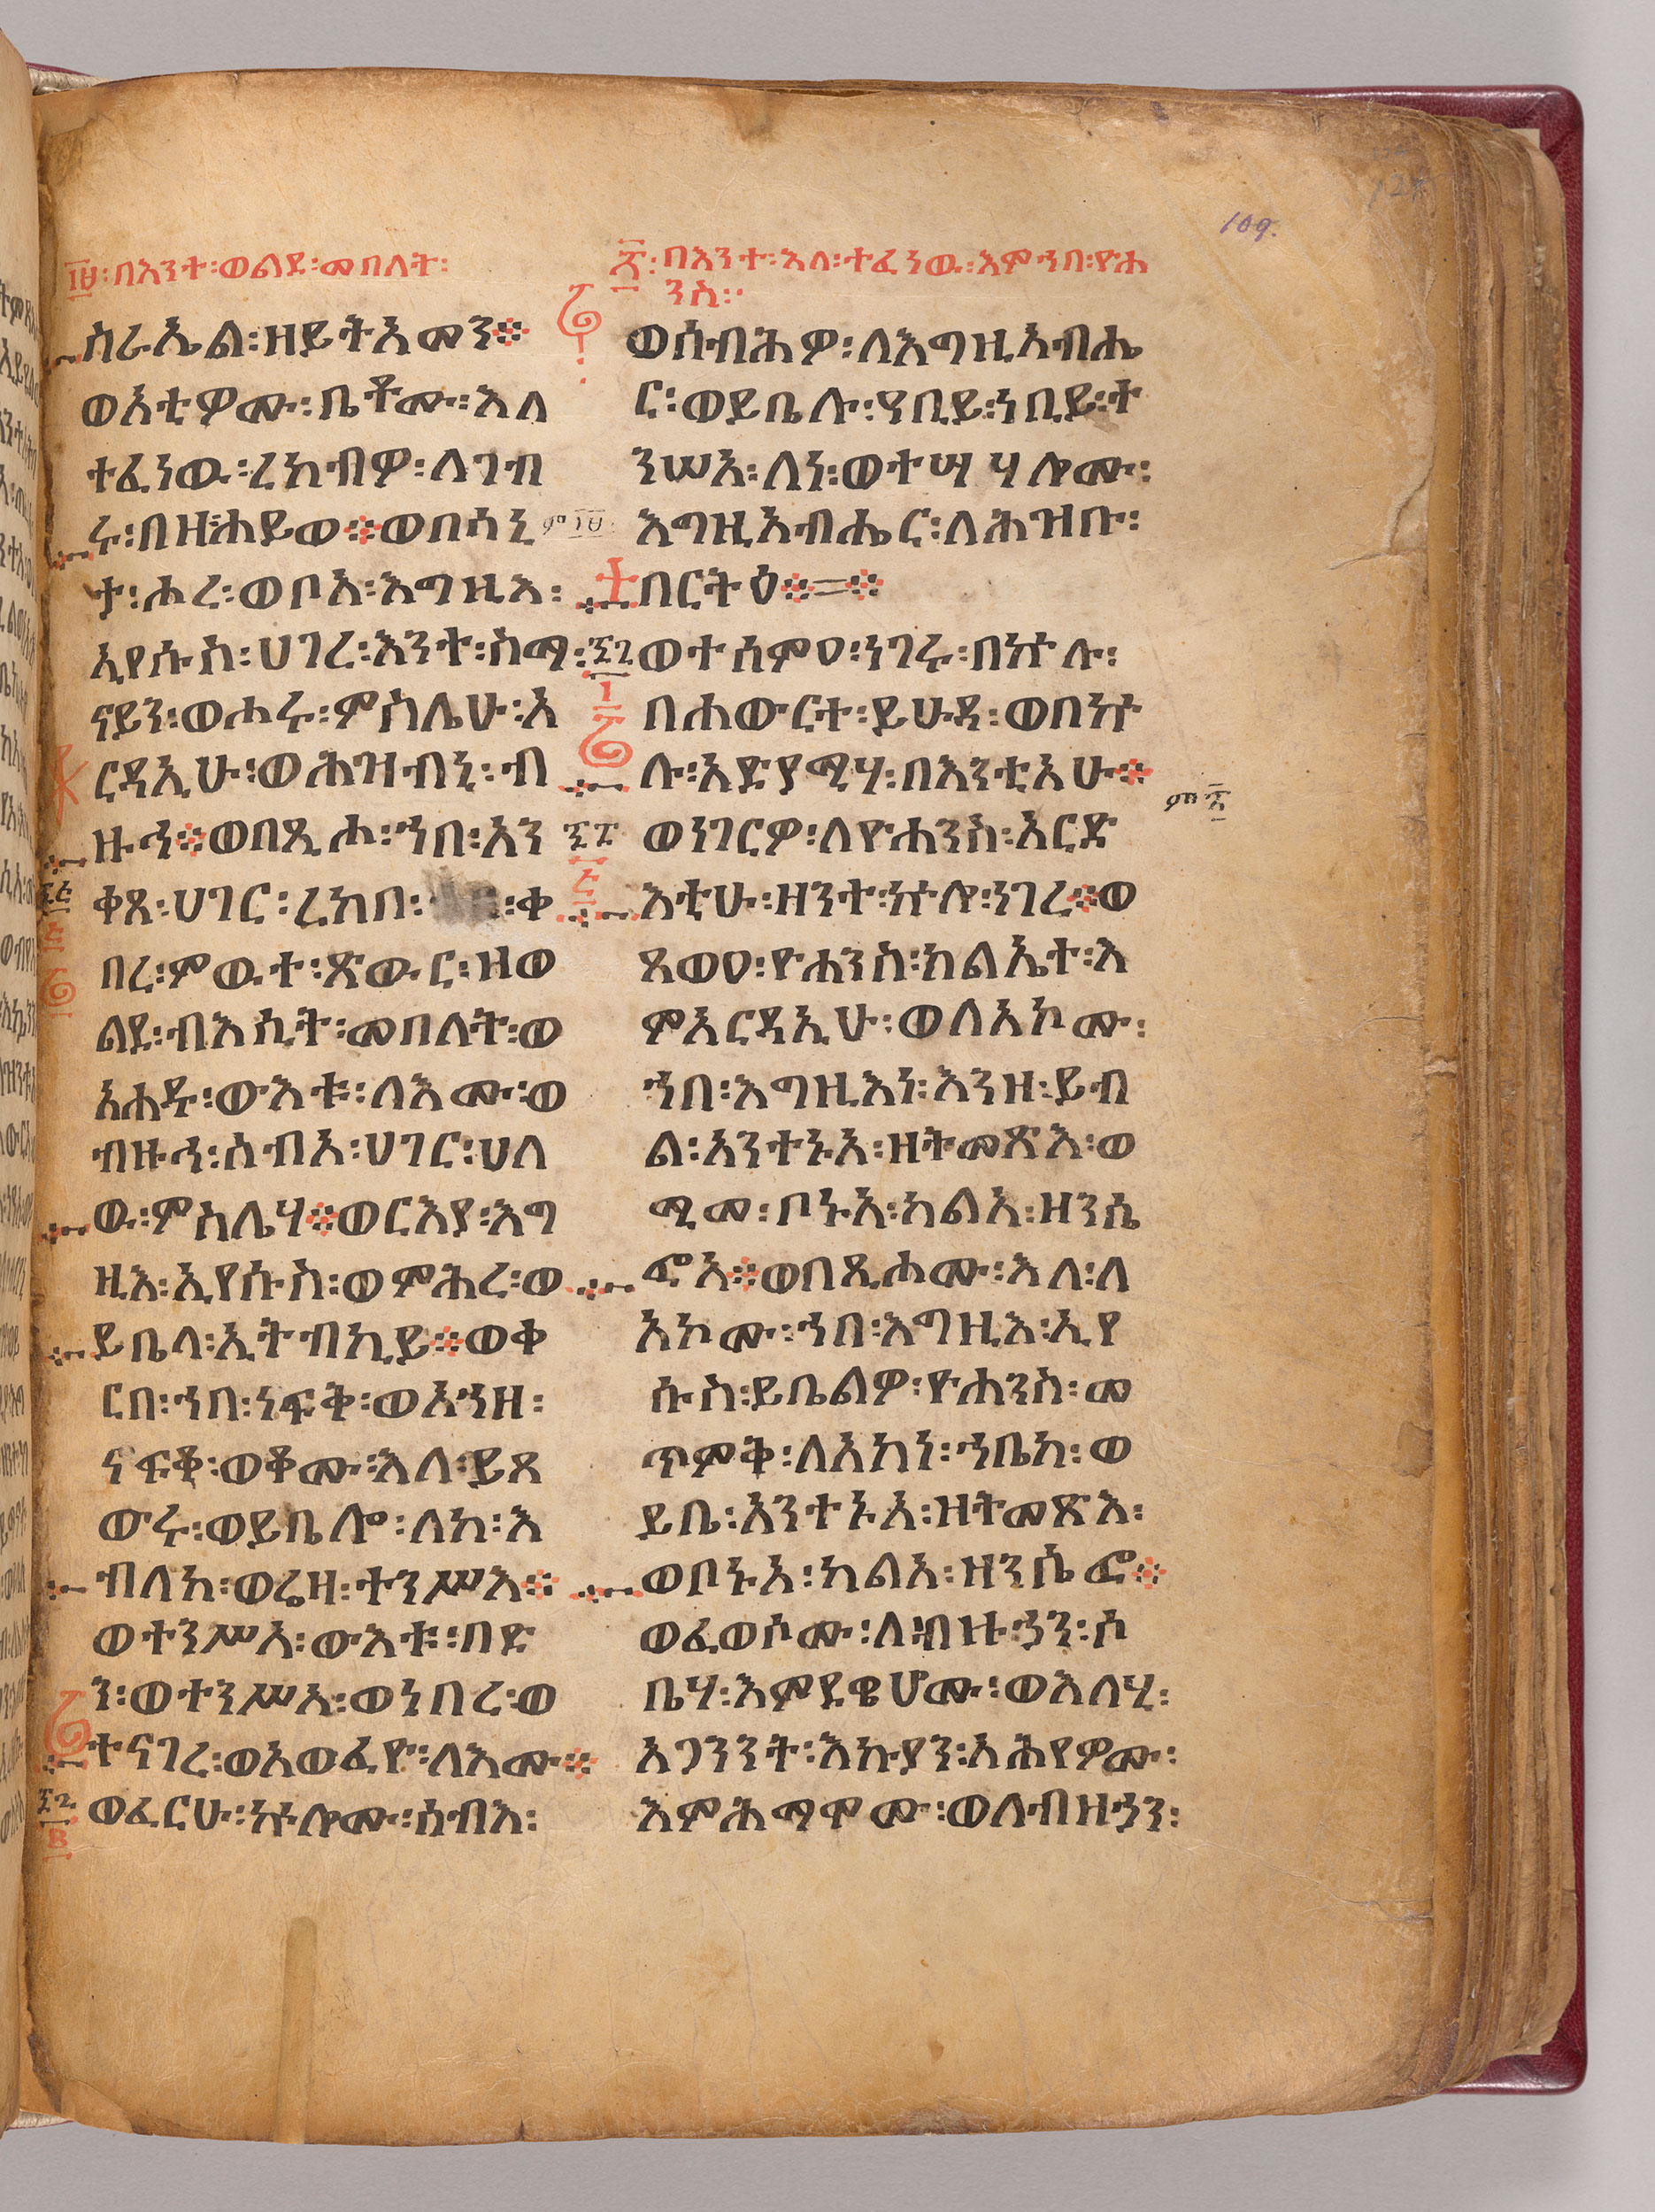 109.
፲፱፡በእንተ፡ወልደ፡መበለት፡
ስራኤል፡ዘይትአመን፨
ወአቲዎሙ፡ቤቶሙ፡እለ
ተፈነው፡ረከብዎ፡ለገብ
ሩ፡በዘሐይወ፨ወበሳኒ
ታ፡ሖረ፡ወቦአ፡እግዚእ፡
ኢየሱስ፡ሀገረ፡እንተ፡ስማ፡
ናይን፡ወሖሩ፡ምስሌሁ፡አ
ርዳኢሁ፡ወሕዝብኒ፡ብ
ዙኅ፨ወበጺሖ፡ኀበ፡አን
ቀጸ፡ሀገር፡ረከበ፡ ፡ቀ
በረ፡ምውተ፡ጽውር፡ዘወ
ልደ፡ብእሲት፡መበለት፡ወ
አሐዱ፡ውእቱ፡ለእሙ፡ወ
ብዙኅ፡ሰብአ፡ሀገር፡ሀለ
ዉ፡ምስሌሃ፨ወርእያ፡እግ
ዚእ፡ኢየሱስ፡ወምሕረ፡ወ
ይቤላ፡ኢትብኪይ፨ወቀ
ርበ፡ኀበ፡ነፍቅ፡ወአኀዘ፡
ናፍቂ፡ወቆሙ፡እለ፡ይጸ
ውሩ፡ወይቤሎ፡ለከ፡እ
ብለከ፡ወሬዛ፡ተንሥአ፨
ወተንሥአ፡ውእቱ፡በድ
ን፡ወተንሥአ፡ወነበረ፡ወ
ተናገረ፡ወአወፈዮ፡ለእሙ፨
ወፈርሁ፡ኵሎሙ፡ሰብእ፡
፳፡በእንተ፡እለ፡ተፈነዉ፡እምኀበ፡ዮሐ
ንስ፡
ወሰብሕዎ፡ለእግዚአብሔ
ር፡ወይቤሉ፡ዓቢይ፡ነቢይ፡ተ
ንሠአ፡ለነ፡ወተሣሃሎሙ፡
እግዚአብሔር፡ለሕዝቡ፡
በርትዕ፨=፨
ወተሰምዐ፡ነገሩ፡በኵሉ፡
በሐውርተ፡ይሁዳ፡ወበኵ
ሉ፡አድያሚሃ፡በእንቲአሁ፨
ወነገርዎ፡ለዮሐንስ፡አርድ
እቲሁ፡ዘንተ፡ኵሎ፡ነገረ፨ወ
ጸወዐ፡ዮሐንስ፡ክልኤተ፡እ
ምአርዳኢሁ፡ወለአኮሙ፡
ኀበ፡እግዚእነ፡እንዘ፡ይብ
ል፡አንተኑአ፡ዘትመጽእ፡ወ
ሚመ፡ቦኑአ፡ካልእ፡ዘንሴ
ፎአ፨ወበጺሖሙ፡እለ፡ለ
አኮሙ፡ኀበ፡እግዚእ፡ኢየ
ሱስ፡ይቤልዎ፡ዮሐንስ፡መ
ጥምቅ፡ለአከነ፡ኀቤከ፡ወ
ይቤ፡አንተኑአ፡ዘትመጽእ፡
ወቦኑአ፡ካልእ፡ዘንሴፎ፨
ወፈወሶሙ፡ለብዙኃን፡ሶ
ቤሃ፡እምደዌሆሙ፡ወእለሂ፡
አጋንንት፡እኩያን፡አሕየዎሙ፡
እምሕማሞሙ፡ወለብዘኃን፡